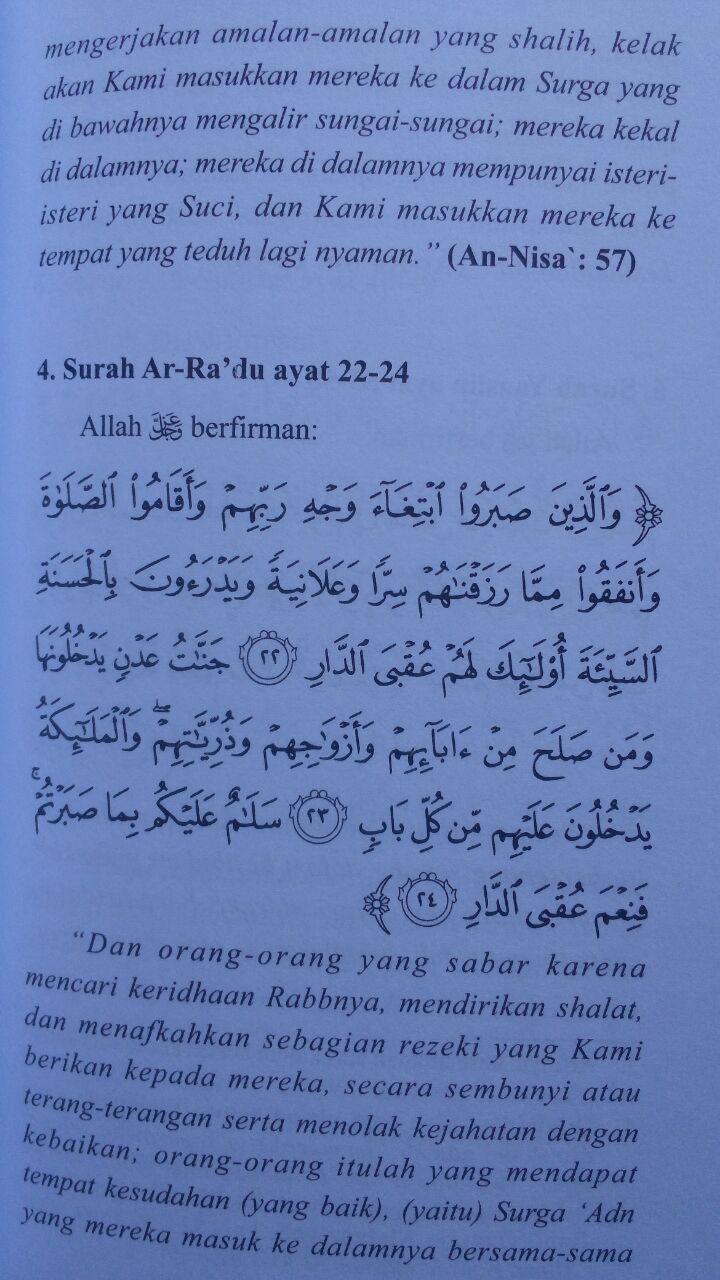 mengerjakan amalan-amalan yang shalih, kelak
akan Kami masukkan mereka ke dalam Surga yang
di bawahnya mengalir sungai-sungai; mereka kekal
di dalamnya; mereka di dalamnya mempunyai isteri-
isteri yang Suci, dan Kami masukkan mereka ke
tempat yang teduh lagi nyaman." (An-Nisa`: 57)
4. Surah Ar-Ra'du ayat 22-24
Allah عَزَّوَجَلَّ berfirman:
﴿ وَٱلَّذِينَ صَبَرُوا۟ ٱبْتِغَآءَ وَجْهِ رَبِّهِمْ وَأَقَامُوا۟ ٱلصَّلَوٰةَ
وَأَنفَقُوا۟ مِمَّا رَزَقْنَٰهُمْ سِرًّا وَعَلَانِيَةً وَيَدْرَءُونَ بِٱلْحَسَنَةِ
ٱلسَّيِّئَةَ أُو۟لَٰٓئِكَ لَهُمْ عُقْبَى ٱلدَّارِ ٢٢ جَنَّٰتُ عَدْنٍ يَدْخُلُونَهَا
وَمَن صَلَحَ مِنْ ءَابَآئِهِمْ وَأَزْوَٰجِهِمْ وَذُرِّيَّٰتِهِمْ ۖ وَٱلْمَلَٰٓئِكَةُ
يَدْخُلُونَ عَلَيْهِم مِّن كُلِّ بَابٍ ٢٣ سَلَٰمٌ عَلَيْكُم بِمَا صَبَرْتُمْ ۚ
فَنِعْمَ عُقْبَى ٱلدَّارِ ٢٤ ﴾
"Dan orang-orang yang sabar karena
mencari keridhaan Rabbnya, mendirikan shalat,
dan menafkahkan sebagian rezeki yang Kami
berikan kepada mereka, secara sembunyi atau
terang-terangan serta menolak kejahatan dengan
kebaikan; orang-orang itulah yang mendapat
tempat kesudahan (yang baik), (yaitu) Surga 'Adn
yang mereka masuk ke dalamnya bersama-sama